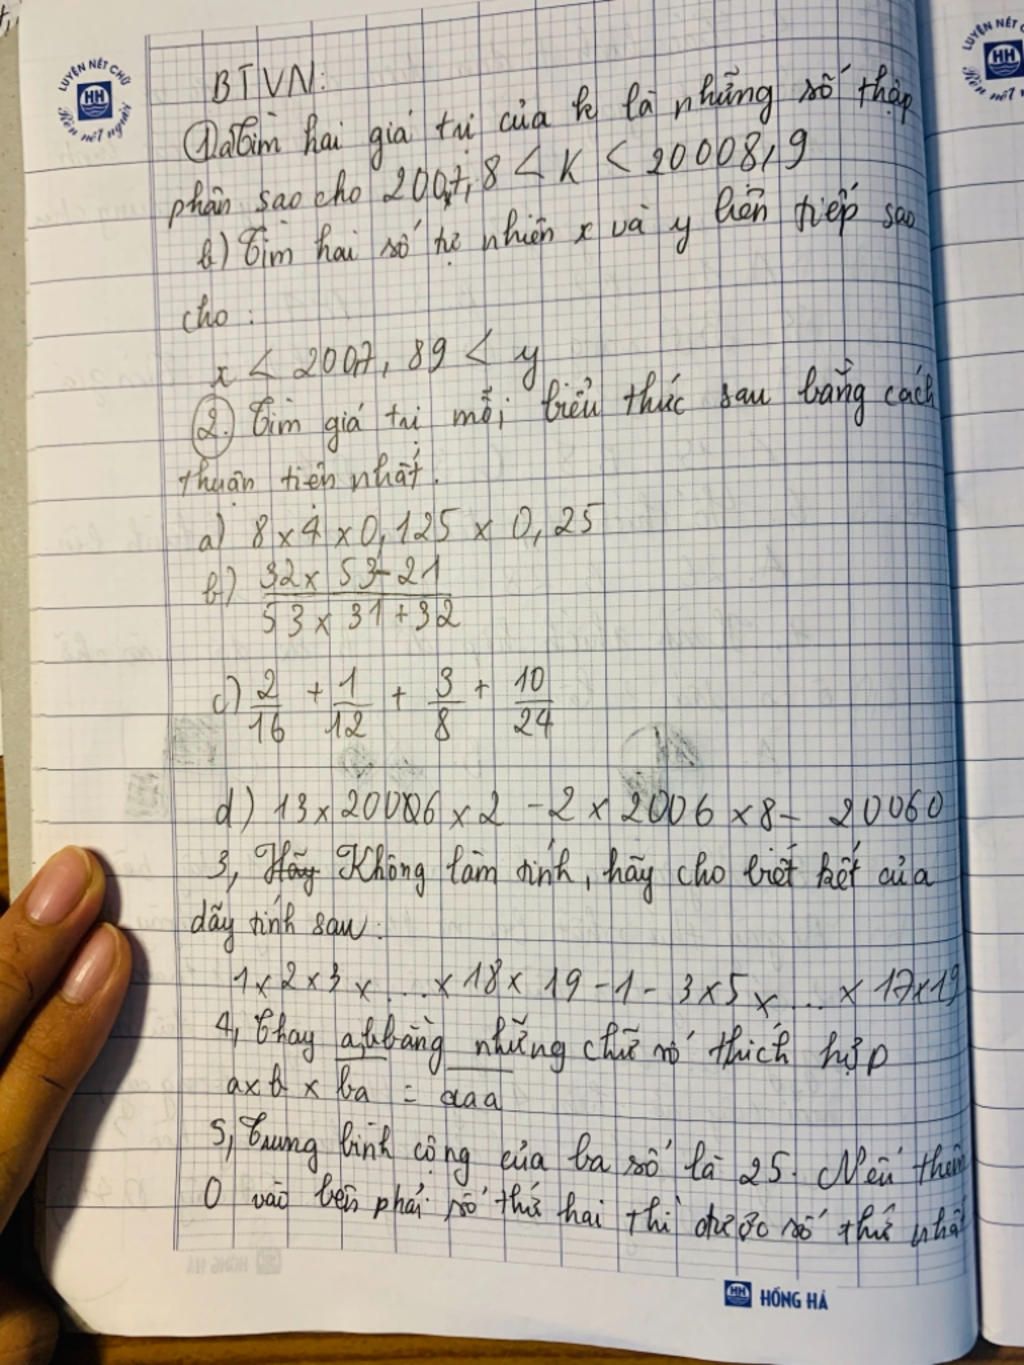 LUYỆN NÉT CHỮ
HH
Rèn nết người
LUYỆN NÉT
HH
Rèn nết
BTVN:
① a) Tìm hai giá trị của k là những số thập
phân sao cho 2007,8 < K < 20008,9
b) Tìm hai số tự nhiên x và y liên tiếp sao
cho :
x < 2007,89 < y
②. Tìm giá trị mỗi biểu thức sau bằng cách
thuận tiện nhất.
a) 8 x 4 x 0,125 x 0,25
b) 32 x 53 - 21
53 x 31 + 32
c) 2/16 + 1/12 + 3/8 + 10/24
d) 13 x 20006 x 2 - 2 x 2006 x 8 - 20060
3, Hãy Không làm tính, hãy cho biết kết của
dãy tính sau:
1 x 2 x 3 x ... x 18 x 19 - 1 - 3 x 5 x ... x 17 x 19
4, Thay a,b bằng những chữ số thích hợp
a x b x ba = aaa
5, Trung bình cộng của ba số là 25. Nếu thêm
0 vào bên phải số thứ hai thì được số thứ nhất
HH HỒNG HÀ